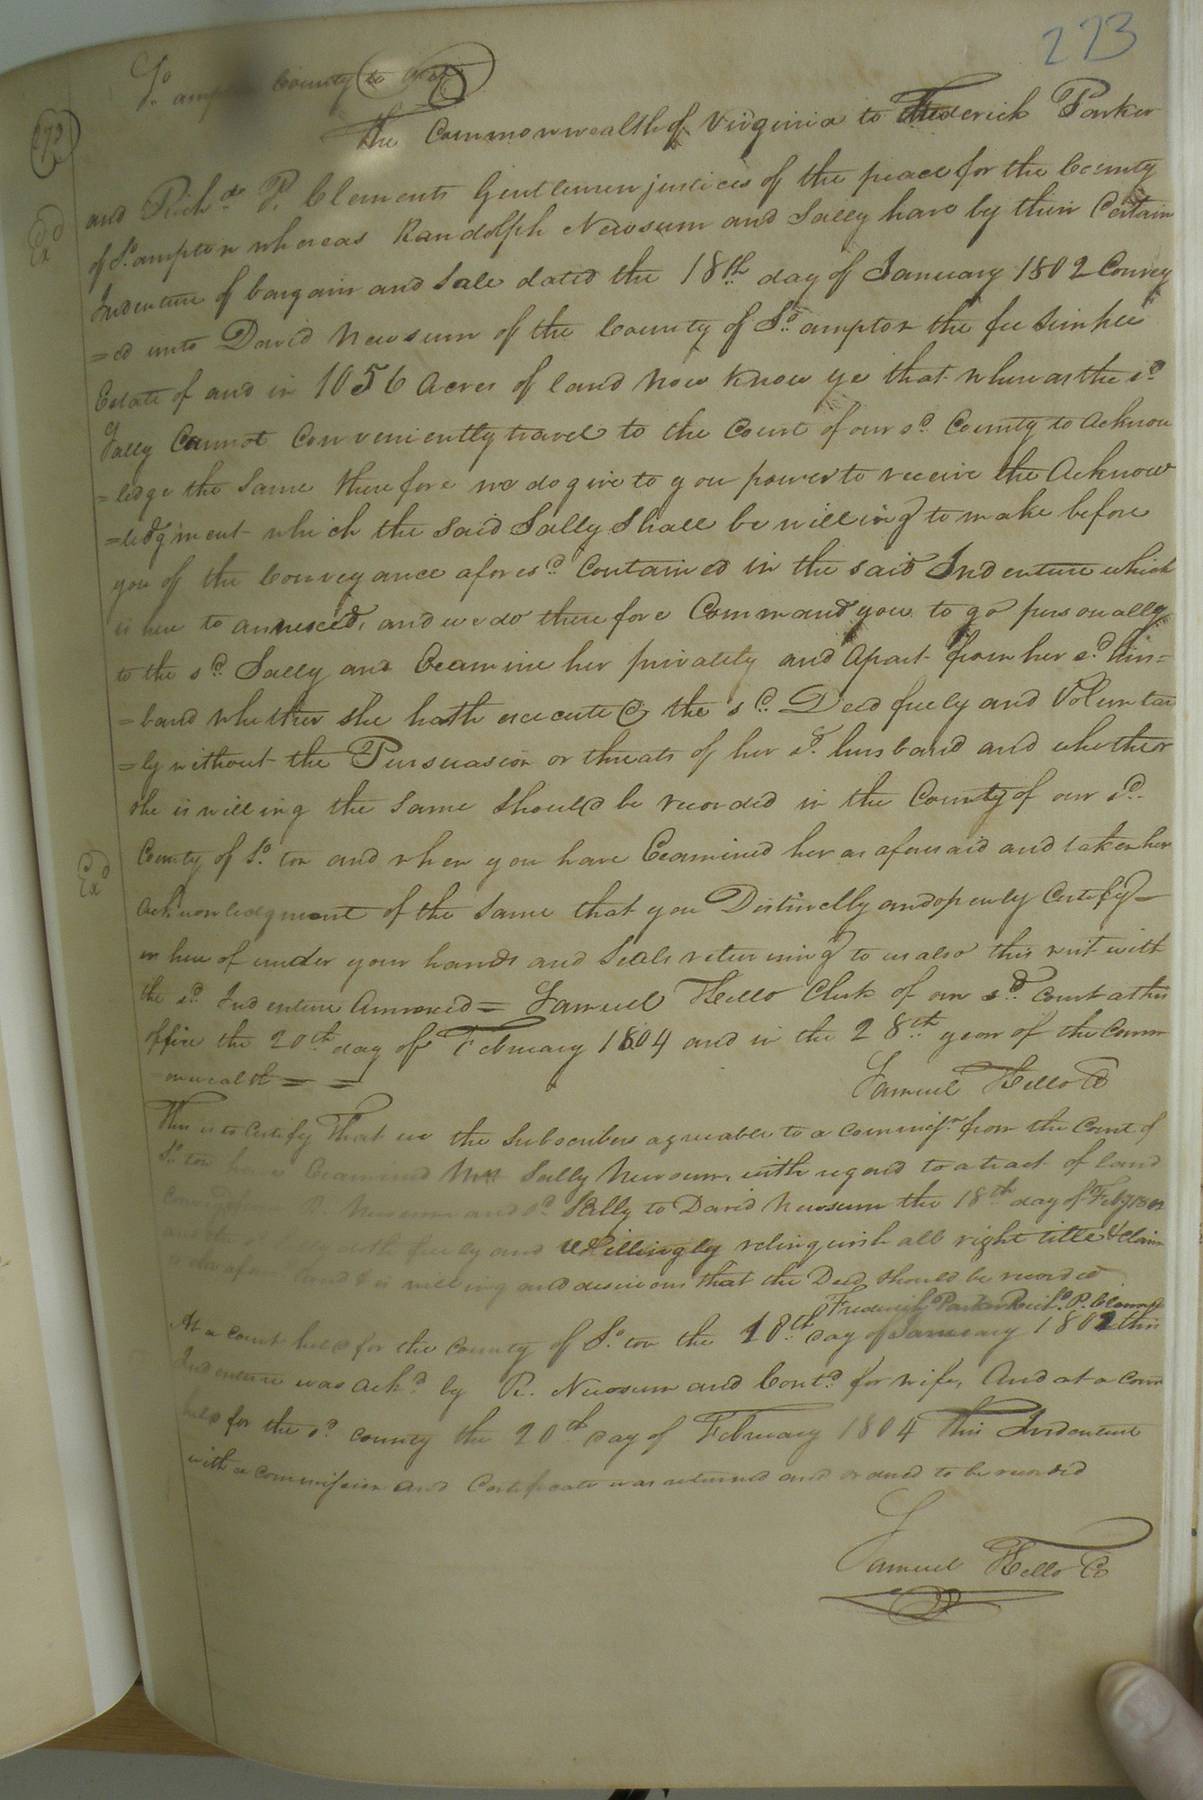 273
So. ampton County to wit
273
The Commonwealth of Virginia to Frederick Parker
and Richd. P. Clements Gentlemen justices of the peace for the County
Exd
of So. ampton whereas Randolph Newsum and Sally have by their Certain
Indenture of bargain and Sale dated the 18th day of January 1802 Convey
=ed unto David Newsum of the County of So. ampton the fee Simple
Estate of and in 1056 Acres of land Now Know ye that whereas the sd.
Sally Cannot Conveniently travel to the Court of our sd. County to Acknow
=ledge the Same therefore we do give to you power to receive the Acknow
=ledgment which the said Sally Shall be willing to make before
you of the Conveyance aforesd. Contained in the said Indenture which
is here to annexed, and we do therefore Command you to go personally
to the sd. Sally and Examine her privately and Apart from her sd. hus=
=band whether she hath executed the sd. Deed freely and Voluntar
=ly without the Persuasion or threats of her sd. husband and whether
she is willing the Same should be recorded in the County of our sd.
Exd
County of So. ton and when you have Examined her as aforesaid and taken her
Acknowledgment of the Same that you Distinctly and openly Certify
us here of under your hands and Seals returning to us also this writ with
the sd. Indenture Annexed = Samuel Kello Clerk of our sd. Court at his
office the 20th day of February 1804 and in the 28th year of the Comm
onwealth = =
Samuel Kello C
This is to Certify That we the Subscribers agreeable to a Commissn. from the Court of
So. ton have Examined Mrs Sally Newsum, with regard to a tract of land
Newsum and sd. Sally to David Newsum the 18th day of Feby 1802
freely and Willingly relinquish all right title & Claim
land & is willing and desirous that the Deed should be recorded
Frederick Parker Richd. P. Clements
At a Court held for the County of So. ton the 18th. day of January 1802 this
Indenture was Ackd. by R. Newsum and Contd. for wife, And at a Cour
held for the sd. County the 20th day of February 1804 This Indenture
with a Commission and Certificate was returned and ordered to be recorded
Samuel Kello C